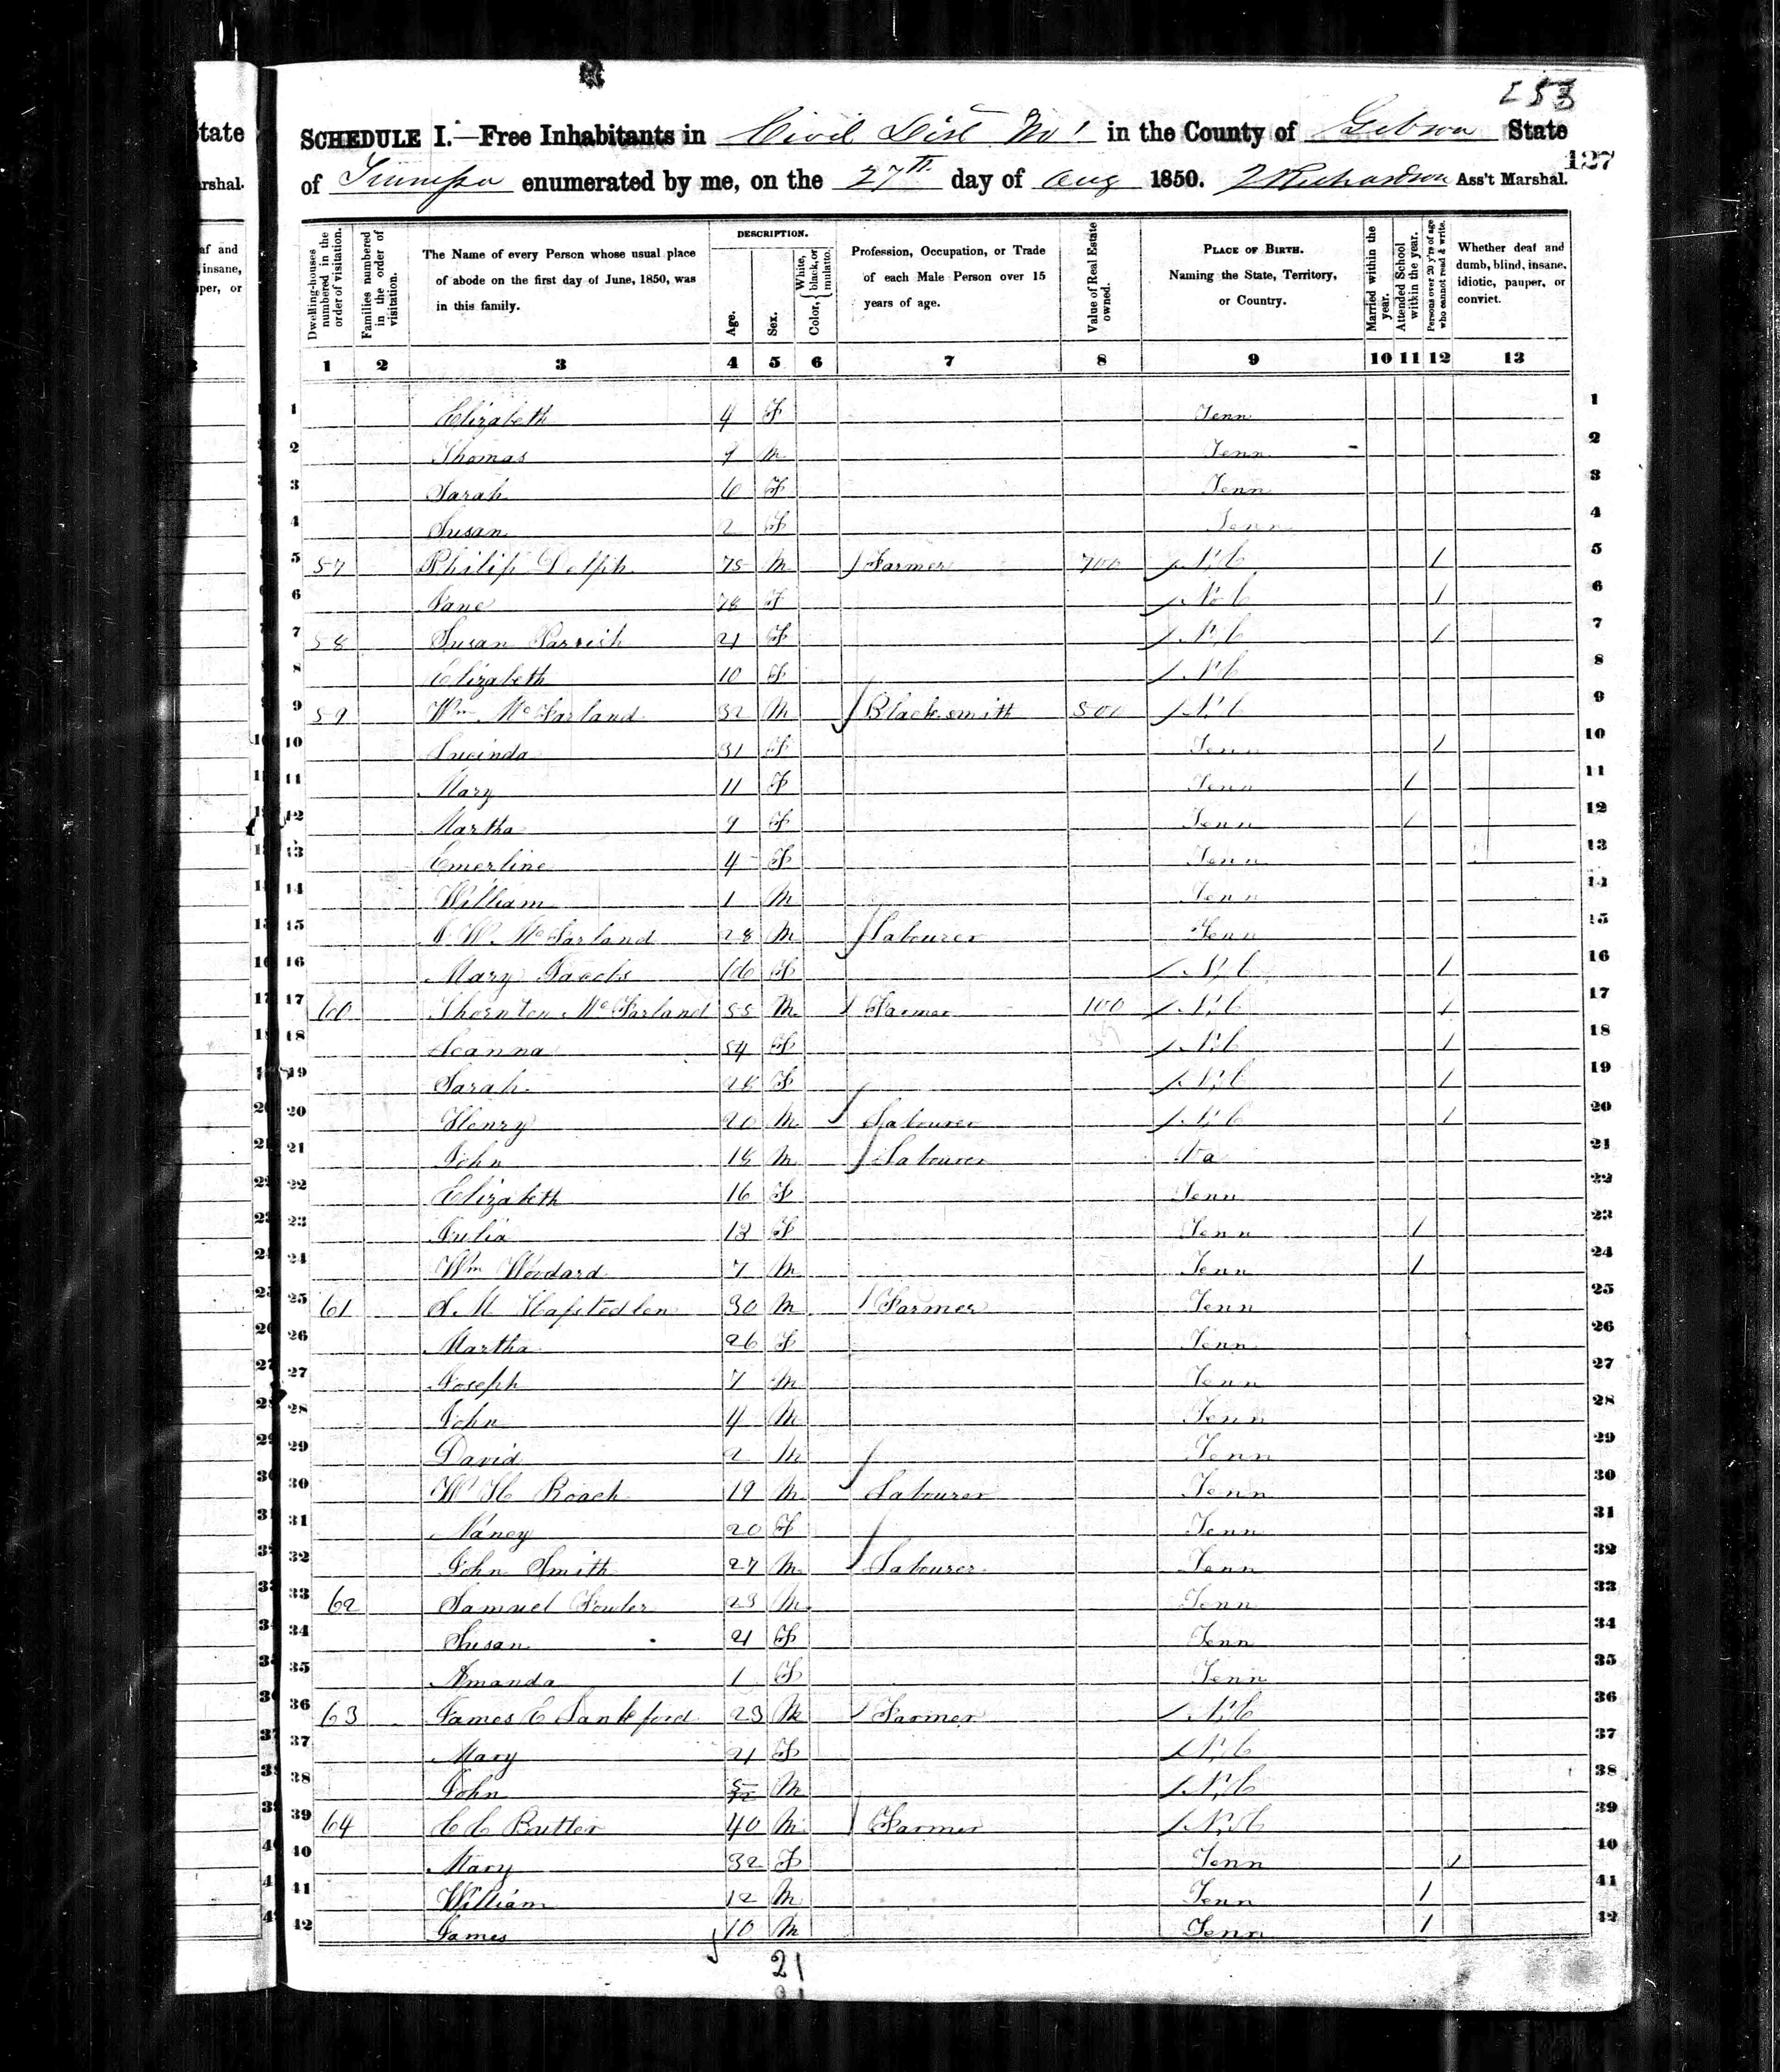 253
SCHEDULE I.—Free Inhabitants in Civil Dist No 1 in the County of Gibson State
127
of Tennessee enumerated by me, on the 27th day of Aug 1850. Richardson Ass't Marshal.
Dwelling-houses numbered in the order of visitation.
Families numbered in the order of visitation.
The Name of every Person whose usual place of abode on the first day of June, 1850, was in this family.
DESCRIPTION.
Age.
Sex.
Color, White, black, or mulatto.
Profession, Occupation, or Trade of each Male Person over 15 years of age.
Value of Real Estate owned.
PLACE OF BIRTH. Naming the State, Territory, or Country.
Married within the year.
Attended School within the year.
Persons over 20 y'rs of age who cannot read & write.
Whether deaf and dumb, blind, insane, idiotic, pauper, or convict.
1 2 3 4 5 6 7 8 9 10 11 12 13
1 Elizabeth 4 F Tenn 1
2 Thomas M Tenn 2
3 Sarah 6 F Tenn 3
4 Susan 2 F Tenn 4
5 57 Philip Delph 75 M / Farmer 700 / N. C 1 5
6 Jane 78 F / N. C 1 6
7 58 Susan Parrish 21 F / N. C 1 7
8 Elizabeth 10 F / N. C 8
9 59 Wm McFarland 32 M / Blacksmith 500 / N. C 9
10 Lucinda 31 F Tenn 1 10
11 Mary 11 F Tenn 1 11
12 Martha 9 F Tenn 1 12
13 Emerline 4 F Tenn 13
14 William 1 M Tenn 14
15 J W. McFarland 28 M / Labourer Tenn 15
16 Mary 16 F / N. C 1 16
17 60 Thornton McFarland 55 M / Farmer 100 / N. C 1 17
18 54 F / N. C 1 18
19 Sarah 28 F / N. C 1 19
20 Henry 20 M / Labourer / N. C 1 20
21 John 18 M / Labourer Va 21
22 Elizabeth 16 F Tenn 22
23 Julia 13 F Tenn 1 23
24 Wm Woodard 7 M Tenn 1 24
25 61 30 M / Farmer Tenn 25
26 Martha 26 F Tenn 26
27 Joseph 7 M Tenn 27
28 John 4 M Tenn 28
29 David 2 M Tenn 29
30 W H Roach 19 M / Labourer Tenn 30
31 Nancy 20 F Tenn 31
32 John Smith 27 M / Labourer Tenn 32
33 62 Samuel Fowler 23 M Tenn 33
34 Susan 21 F Tenn 34
35 Amanda 1 F Tenn 35
36 63 James E Lankford 23 M / Farmer / N. C 36
37 Mary 21 F / N. C 37
38 John 5/12 M / N. C 38
39 64 C C Butler 40 M / Farmer / N. C 39
40 Mary 32 F Tenn 1 40
41 William 12 M Tenn 1 41
42 James 10 M Tenn 1 42
21